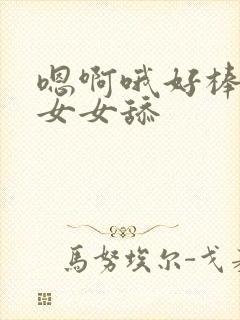 嗯啊哦好棒
女女舔
馬努埃尔-戈